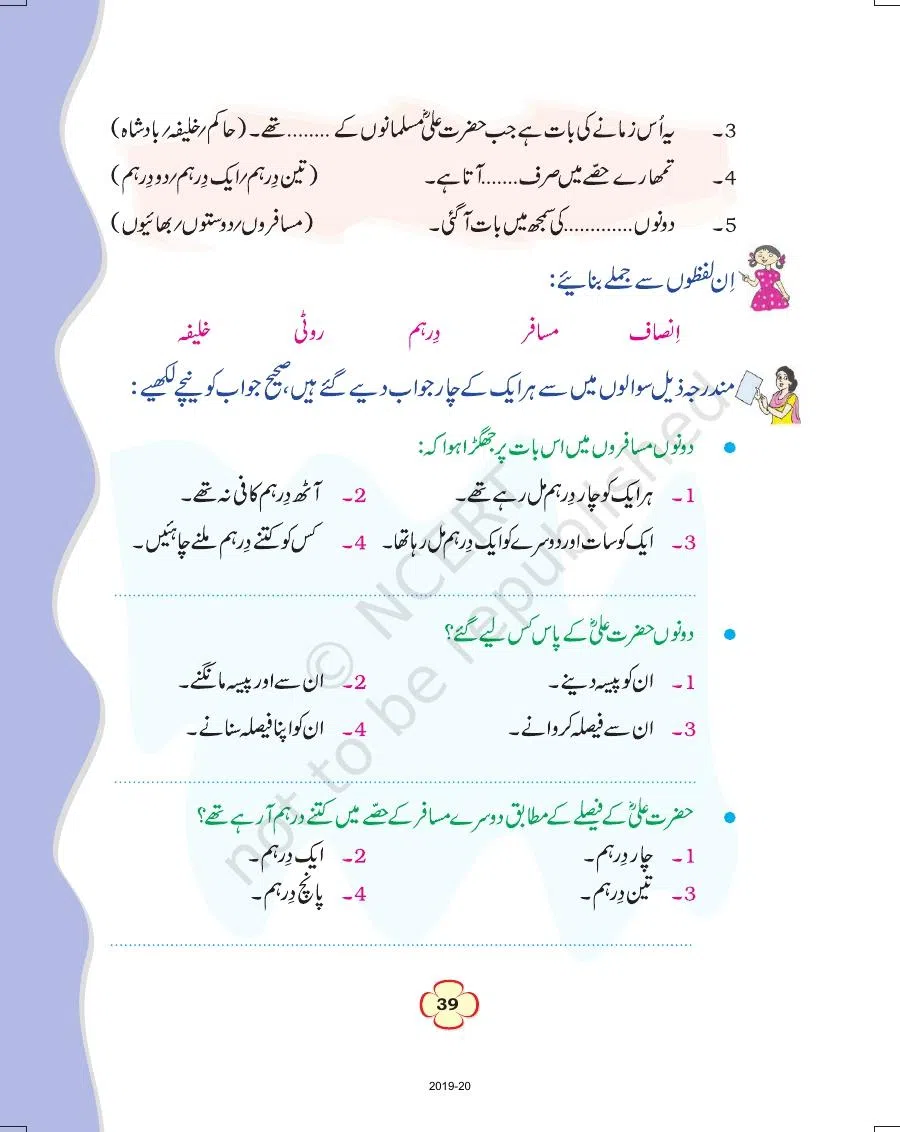 3۔ یہ اُس زمانے کی بات ہے جب حضرت علیؓ مسلمانوں کے ........ تھے۔ (حاکم/خلیفہ/بادشاہ)
4۔ تمھارے حصّے میں صرف.......آتا ہے۔ (تین دِرہم/ایک دِرہم/دو دِرہم)
5۔ دونوں.............کی سمجھ میں بات آ گئی۔ (مسافروں/دوستوں/بھائیوں)
اِن لفظوں سے جملے بنائیے:
اِنصاف مسافر دِرہم روٹی خلیفہ
مندرجہ ذیل سوالوں میں سے ہر ایک کے چار جواب دیے گئے ہیں، صحیح جواب کو نیچے لکھیے:
● دونوں مسافروں میں اس بات پر جھگڑا ہوا کہ:
1۔ ہر ایک کو چار دِرہم مل رہے تھے۔ 2۔ آٹھ دِرہم کافی نہ تھے۔
3۔ ایک کو سات اور دوسرے کو ایک دِرہم مل رہا تھا۔ 4۔ کس کو کتنے دِرہم ملنے چاہئیں۔
● دونوں حضرت علیؓ کے پاس کس لیے گئے؟
1۔ ان کو پیسہ دینے۔ 2۔ ان سے اور پیسہ مانگنے۔
3۔ ان سے فیصلہ کروانے۔ 4۔ ان کو اپنا فیصلہ سنانے۔
● حضرت علیؓ کے فیصلے کے مطابق دوسرے مسافر کے حصّے میں کتنے درہم آ رہے تھے؟
1۔ چار دِرہم۔ 2۔ ایک دِرہم۔
3۔ تین دِرہم۔ 4۔ پانچ دِرہم۔
© NCERT
not to be republished
39
2019-20